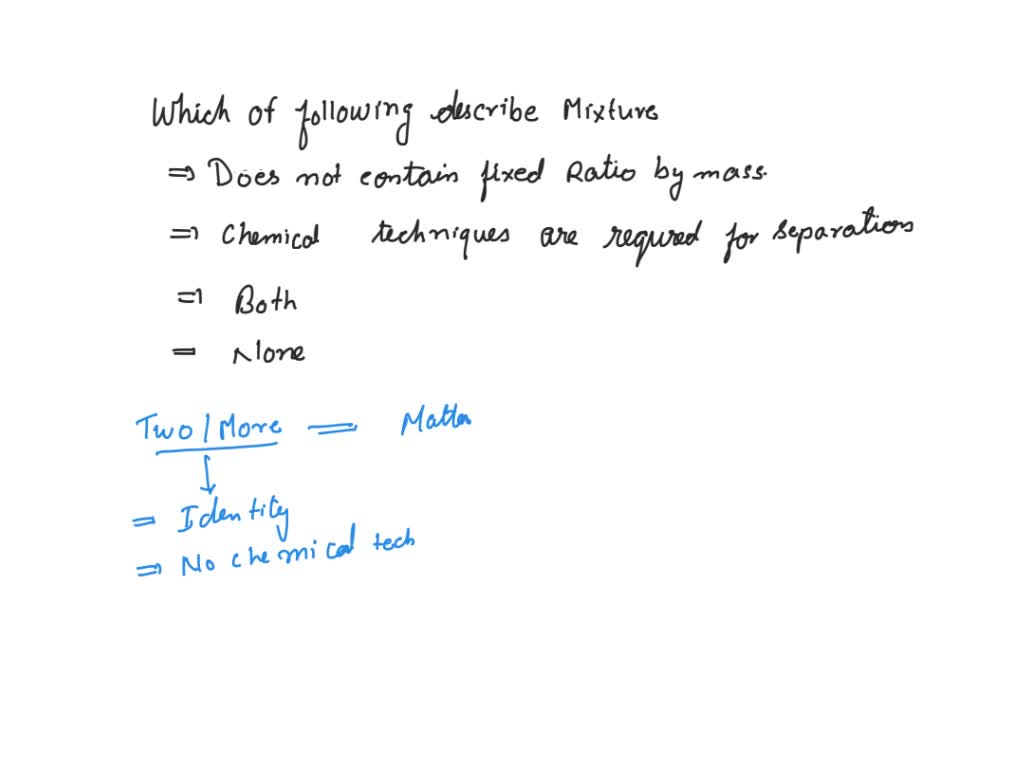 Which of following describe Mixture
⇒ Does not contain fixed Ratio by mass.
⇒ Chemical techniques are requred for separations
⇒ Both
= None
Two / More = Matter
↓
= Identity
⇒ No chemical tech